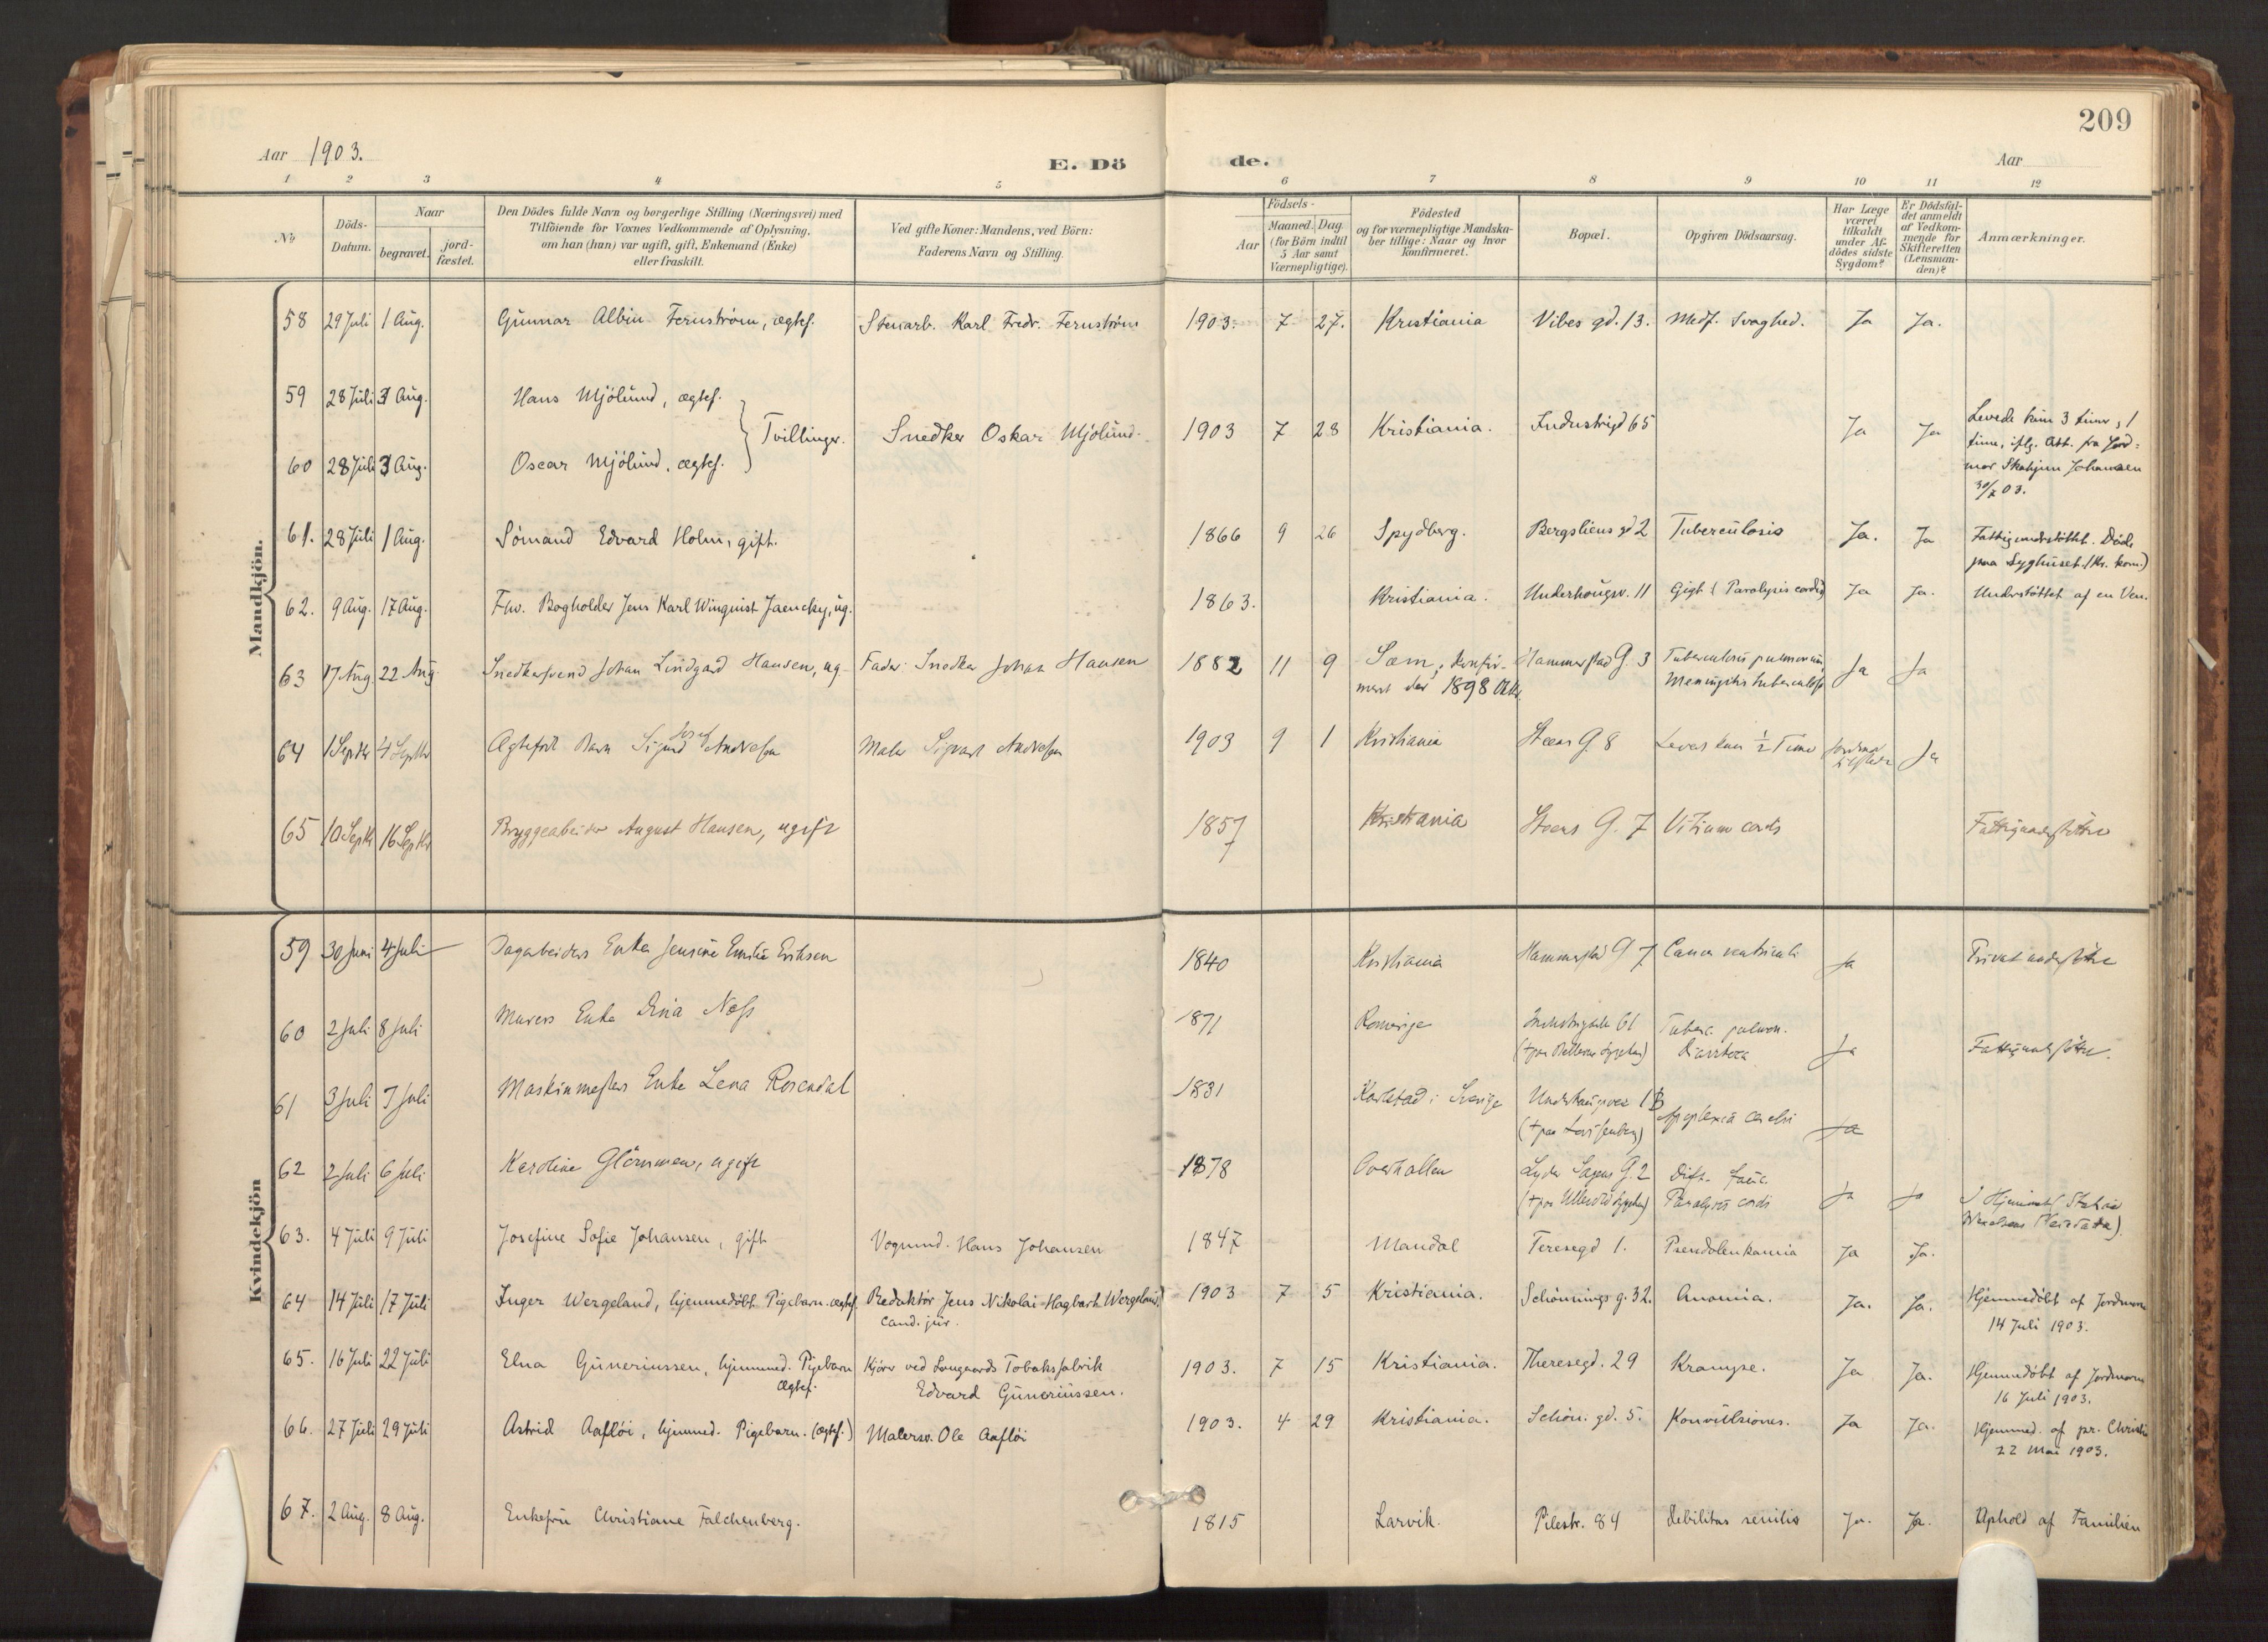 209
Aar 1903.
E. Döde.
Aar
1 2 3 4 5 6 7 8 9 10 11 12
No
Döds-Datum.
Naar
begravet. jord-fæstet.
Den Dödes fulde Navn og borgerlige Stilling (Næringsvei) med
Tilföiende for Voxnes Vedkommende af Oplysning,
om han (hun) var ugift, gift, Enkemand (Enke)
eller fraskilt.
Ved gifte Koner: Mandens, ved Börn:
Faderens Navn og Stilling.
Födsels-
Aar
Maaned. Dag
(for Börn indtil
5 Aar samt
Værnepligtige).
Födested
og for værnepligtige Mandska-
ber tillige: Naar og hvor
konfirmeret.
Bopæl.
Opgiven Dödsaarsag.
Har Læge
været
tilkaldt
under Af-
dödes sidste
Sygdom?
Er Dödsfal-
det anmeldt
af Vedkom-
mende for
Skifteretten
(Lensman-
den)?
Anmærkninger.
Mandkjön.
58 29 Juli 1 Aug. Gunnar Albin Fernström, ægtef. Stenarb. Karl Fredr. Fernström 1903. 7 27. Kristiania Vibes gd. 13. Medf. Svaghed. Ja Ja.
59 28 Juli 3 Aug. Hans Mjölund, ægtef.
Tvillinger. Snedker Oskar Mjölund. 1903 7 28 Kristiania. Industrigd 65 Ja Ja
60 28 Juli 3 Aug. Oscar Mjölund, ægtef.
Levede kun 3 timer, 1
time, iflg. Att. fra Jord-
mor Johansen
30/7 03.
61. 28 Juli 1 Aug. Sömand Edvard Holm, gift. 1866 9 26 Spydberg. Bergsliens gd 2 Tuberculosis Ja. Ja Fattigunderstöttet. Döde
paa Syghuset (Kr. kom.)
62. 9 Aug. 17 Aug. Fhv. Bogholder Jens Karl Winquist Jaencky, ug. 1863. Kristiania. Underhaugsv. 11 Gigt (Paralysis cordis) Ja Ja. Understöttet af en Ven.
63 17 Aug 22 Aug Snedkersvend Johan Lindgard Hansen, ug. Fader: Snedker Johan Hansen 1882 11 9 Sem, konfir-
meret der 1898 Okt. Hammerstad G. 3 Tuberculosis pulmonum
Meningitis tuberculosa Ja Ja
64 1 Septbr 4 Septbr Ægtefødt Barn Sigurd Josef Andresen Maler Sigvart Andresen 1903 9 1 Kristiania Steens G. 8 Levet kun ½ Time Jordmor
tilstede Ja
65 10 Septbr 16 Septbr Bryggearbeider August Hansen, ugift 1857 Kristiania Steens G. 7 Vitium cordis Fattigunderstøttet
Kvindekjön
59 30 Juni 4 Juli Dagarbeiders Enke Jensine Emilie Eriksen 1840 Kristiania Hammerstad G 7 Cancer ventriculi Ja Privat understøttet
60 2 Juli 8 Juli Murers Enke Dina Næss 1871 Romerige Industrigade 61 Tuberc. pulmon.
Diarrhoea Ja Fattigunderstøttet.
61 3 Juli 7 Juli Maskinmesters Enke Lena Rosendal 1831 Karlstad i Sverige Underhaugsvei 1B
(†paa Lovisenberg) Apoplexia cerebri Ja
62 2 Juli 6 Juli Karoline Glömmen, ugift 1878 Overhallen Lyder Sagens G. 2
(†paa Ullevold Sygehus) Dift. fauc.
Paralysis cordis Ja Ja
63. 4 Juli 9 Juli Josefine Sofie Johansen, gift Vognmd. Hans Johansen 1847 Mandal Teresegd 1. Pseudoleukæmia Ja Ja.
64 14 Juli 17 Juli Inger Wergeland, hjemmedöbt Pigebarn. ægtef. Redaktör Jens Nikolai Hagbarth Wergeland,
cand. jur. 1903 7 5 Kristiania. Schönnings g. 32. Anæmia. Ja. Ja. Hjemmedöbt af Jordmoren
14 Juli 1903.
65. 16 Juli 22 Juli Elna Guneriussen, hjemmed. Pigebarn
ægtef. Kjörer ved Langaards Tobaksfabrik
Edvard Guneriussen. 1903. 7 15 Kristiania. Theresegd. 29 Krampe. Ja Ja. Hjemmedöbt af Jordmoren
16 Juli 1903.
66. 27 Juli 29 Juli Astrid Aaflöi, hjemmed. Pigebarn. (ægtef.) Malersv. Ole Aaflöi 1903. 4 29 Kristiania. Schön. gd. 5. Konvulsiones. Ja Ja. Hjemmed. af pr. Christie
22 Mai 1903.
67. 2 Aug. 8 Aug. Enkefru Christiane Falchenberg. 1815 Larvik. Pilestr. 84 Debilitas senilis Ja. Ja. Ophold af Familien